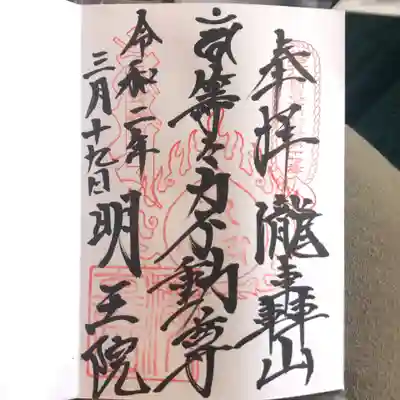 奉拝 瀧轟山
等々力不動尊
令和二年
三月十九日 明王院